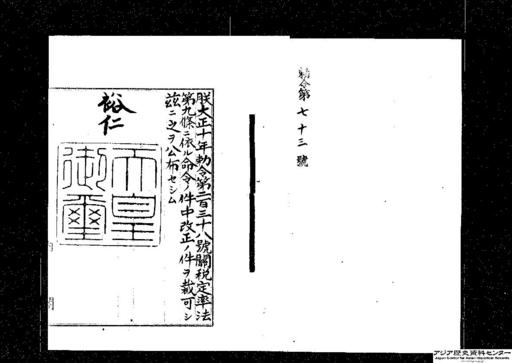 勅令第七十三號
朕大正十年勅令第二百三十八號關税定率法
第九條ニ依ル命令ノ件中改正ノ件ヲ裁可シ
茲ニ之ヲ公布セシム
裕仁
天皇
御璽
内閣
アジア歴史資料センター
Japan Center for Asian Historical Records